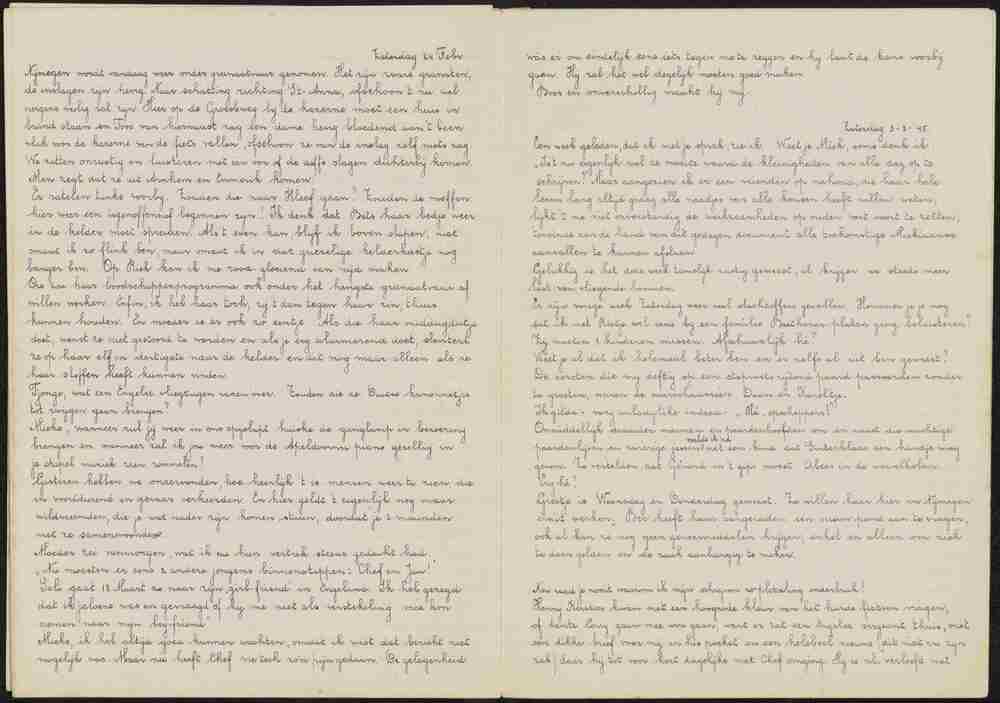 Zaterdag 24 Febr
Nijmegen wordt vandaag weer onder granaatvuur genomen. Het zijn zware granaten,
de inslagen zijn hevig. Naar schatting richting St. Anna, ofschoon 't nu wel
nergens veilig zal zijn. Hier op de Groesbeekweg bij de kazerne moet een huis in
brand staan en Toos van hiernaast zag een dame hevig bloedend aan 't been
vlak voor de kazerne van de fiets vallen, ofschoon ze van de inslag zelf niets zag.
We zitten onrustig en luisteren met een oor of de doffe slagen dichterbij komen.
Men zegt dat ze uit Arnhem en Emmerik komen.
Er ratelen tanks voorbij. Zouden die naar Kleef gaan? Zouden de moffen
hier weer een tegenoffensief begonnen zijn? Ik denk dat Bets haar bedje weer
in de kelder moet spreiden. Als 't even kan blijf ik boven slapen, niet
omdat ik zo flink ben, maar omdat ik in dat griezelige kelderhoekje nog
banger ben. Op Riek kan ik me soms gloeiend van nijd maken
Die zou haar boodschappenprogramma ook onder het hevigste granaatvuur af
willen werken. Enfin, ik heb haar toch, zij 't dan tegen haar zin, thuis
kunnen houden. En moeder is er ook zo eentje. Als die haar middagdutje
doet, wenst ze niet gestoord te worden en als je erg alarmerend doet, slentert
ze op haar elf en dertigst naar de kelder en dat nog maar alleen als ze
haar sloffen heeft kunnen vinden.
Tjonge, wat een Engelse vliegtuigen razen over. Zouden die de Duitse kanonnetjes
tot zwijgen gaan brengen?
Mieke, wanneer zul jij weer in ons opgelapt huiske de ganglamp in beroering
brengen en wanneer zal ik jou weer voor de Apeldoornse piano gezellig in
je stapel muziek zien rommelen?
Gisteren hebben we ondervonden, hoe heerlijk 't is mensen weer te zien, die
in voortdurend gevaar verkeerden. En hier geldt 't eigenlijk nog maar
wildvreemden, die je wat nader zijn komen staan, doordat je 2 maanden
met ze samenwoonde.
Moeder zei vanmorgen, wat ik na hun vertrek steeds gedacht had.
„Nu moesten er eens 2 andere jongens binnenstappen: Chef en Jan!"
Bob gaat 18 Maart a.s. naar zijn girl-friend in Engeland. Ik heb gezegd
dat ik jaloers was en gevraagd of hij me niet als verstekeling mee kon
nemen naar mijn boyfriend.
Mieke, ik heb altijd goed kunnen wachten, omdat ik wist dat bericht niet
mogelijk was. Maar nu heeft Chef me toch zo'n pijn gedaan. De gelegenheid
was er om eindelijk eens iets tegen me te zeggen en hij laat de kans voorbij
gaan. Hij zal het wel degelijk moeten goed maken.
Boos en onverschillig maakt hij mij.
Zaterdag 3-3-'45.
Een week geleden, dat ik met je sprak, zie ik. Weet je Miek, soms denk ik
„Is 't nu eigenlijk wel de moeite waard de kleinigheden van alle dag op te
schrijven?" Maar aangezien ik er een vriendin op nahoud, die haar hele
leven lang altijd graag alle naadjes van alle kousen heeft willen weten,
lijkt 't me niet onverstandig de werkzaamheden op ouden voet voort te zetten,
teneinde aan de hand van dit gedegen document alle toekomstige Miekiaanse
aanvallen te kunnen afslaan.
Gelukkig is het deze week tamelijk rustig geweest, al krijgen we steeds meer
last van vliegende bommen.
Er zijn vorige week Zaterdag weer veel slachtoffers gevallen. Herinner je je nog
dat ik met Rietje wel eens bij een familie Beethoven platen ging beluisteren?
Zij moeten 2 kinderen missen. Afschuwelijk hè?
Weet je al dat ik helemaal beter ben en er zelfs al uit ben geweest?
De eersten die mij deftig op een stapvoets rijdend paard passeerden zonder
te groeten, waren de marechaussee's Daan en Kareltje.
Ik gilde - very unladylike indeed - „Hé, opscheppers!"
Onmiddellijk draaiden mannen- en paardenhoofden om en naast die machtige
paardenlijven en zwierige jassen voelde ik me net een kind dat Sinterklaas een handje mag
geven. Ze vertelden dat Gérard in 't gips moest. Abces in de wervelkolom.
Erg hè?
Greetje is Woensdag en Donderdag geweest. Ze willen haar hier in Nijmegen
eruit werken. Bob heeft haar aangeraden een nieuw pand aan te vragen,
ook al kan ze nog geen geneesmiddelen krijgen, enkel en alleen om zich
te doen gelden en de zaak aanhangig te maken.
Nou raad je nooit waarom ik mijn schrijven zo plotseling onderbrak!
Henny Kersten kwam met een hoogrode kleur van het harde fietsen vragen,
of tante Corry gauw mee wou gaan, want er zat een Engelse sergeant thuis, met
een dikke brief voor mij in his pocket en een heleboel nieuws (dit niet in zijn
zak) daar hij tot voor kort dagelijks met Chef omging. Hij is nl. verloofd met